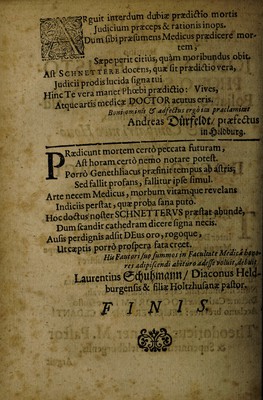 ARguit interdum dubiæ prædictio mortis
Judicium præceps & rationis inops.
Dum sibi præsumens Medicus prædicere mortem,
Sæpe perit citius, quàm moribundus obit.
Ast SCHNETTERE docens, quæ sit prædictio vera,
Judicii prodis lucida signa tui.
Hinc Te vera manet Phœbi prædictio: Vives,
Atque artis medicæ DOCTOR acutus eris.
Andreas Dürfeldt, præfectus
in Hildburg.
PRædicunt mortem certò peccata futuram,
Ast horam certò nemo notare potest.
Porrò Genethliacus præfinit tempus ab astris,
Sed fallit profans, fallitur ipse simul.
Arte necem Medicus, morbum vitamque revelans
Indiciis perstat, quæ proba sana puto.
Hoc doctus noster SCHNETTERVS præstat abundè,
Dum scandit cathedram dicere signa necis.
Ausis perdignis adsit DEus oro, rogoque,
Ut cæptis porrò prospera fata creet.
His Fautori suo summos in Facultate Medica honores
adipiscendi abituro adesse voluit, debuit
Laurentius Schuhmann / Diaconus Heldburgensis
& filiæ Holtzhusanæ pastor.
FINIS.